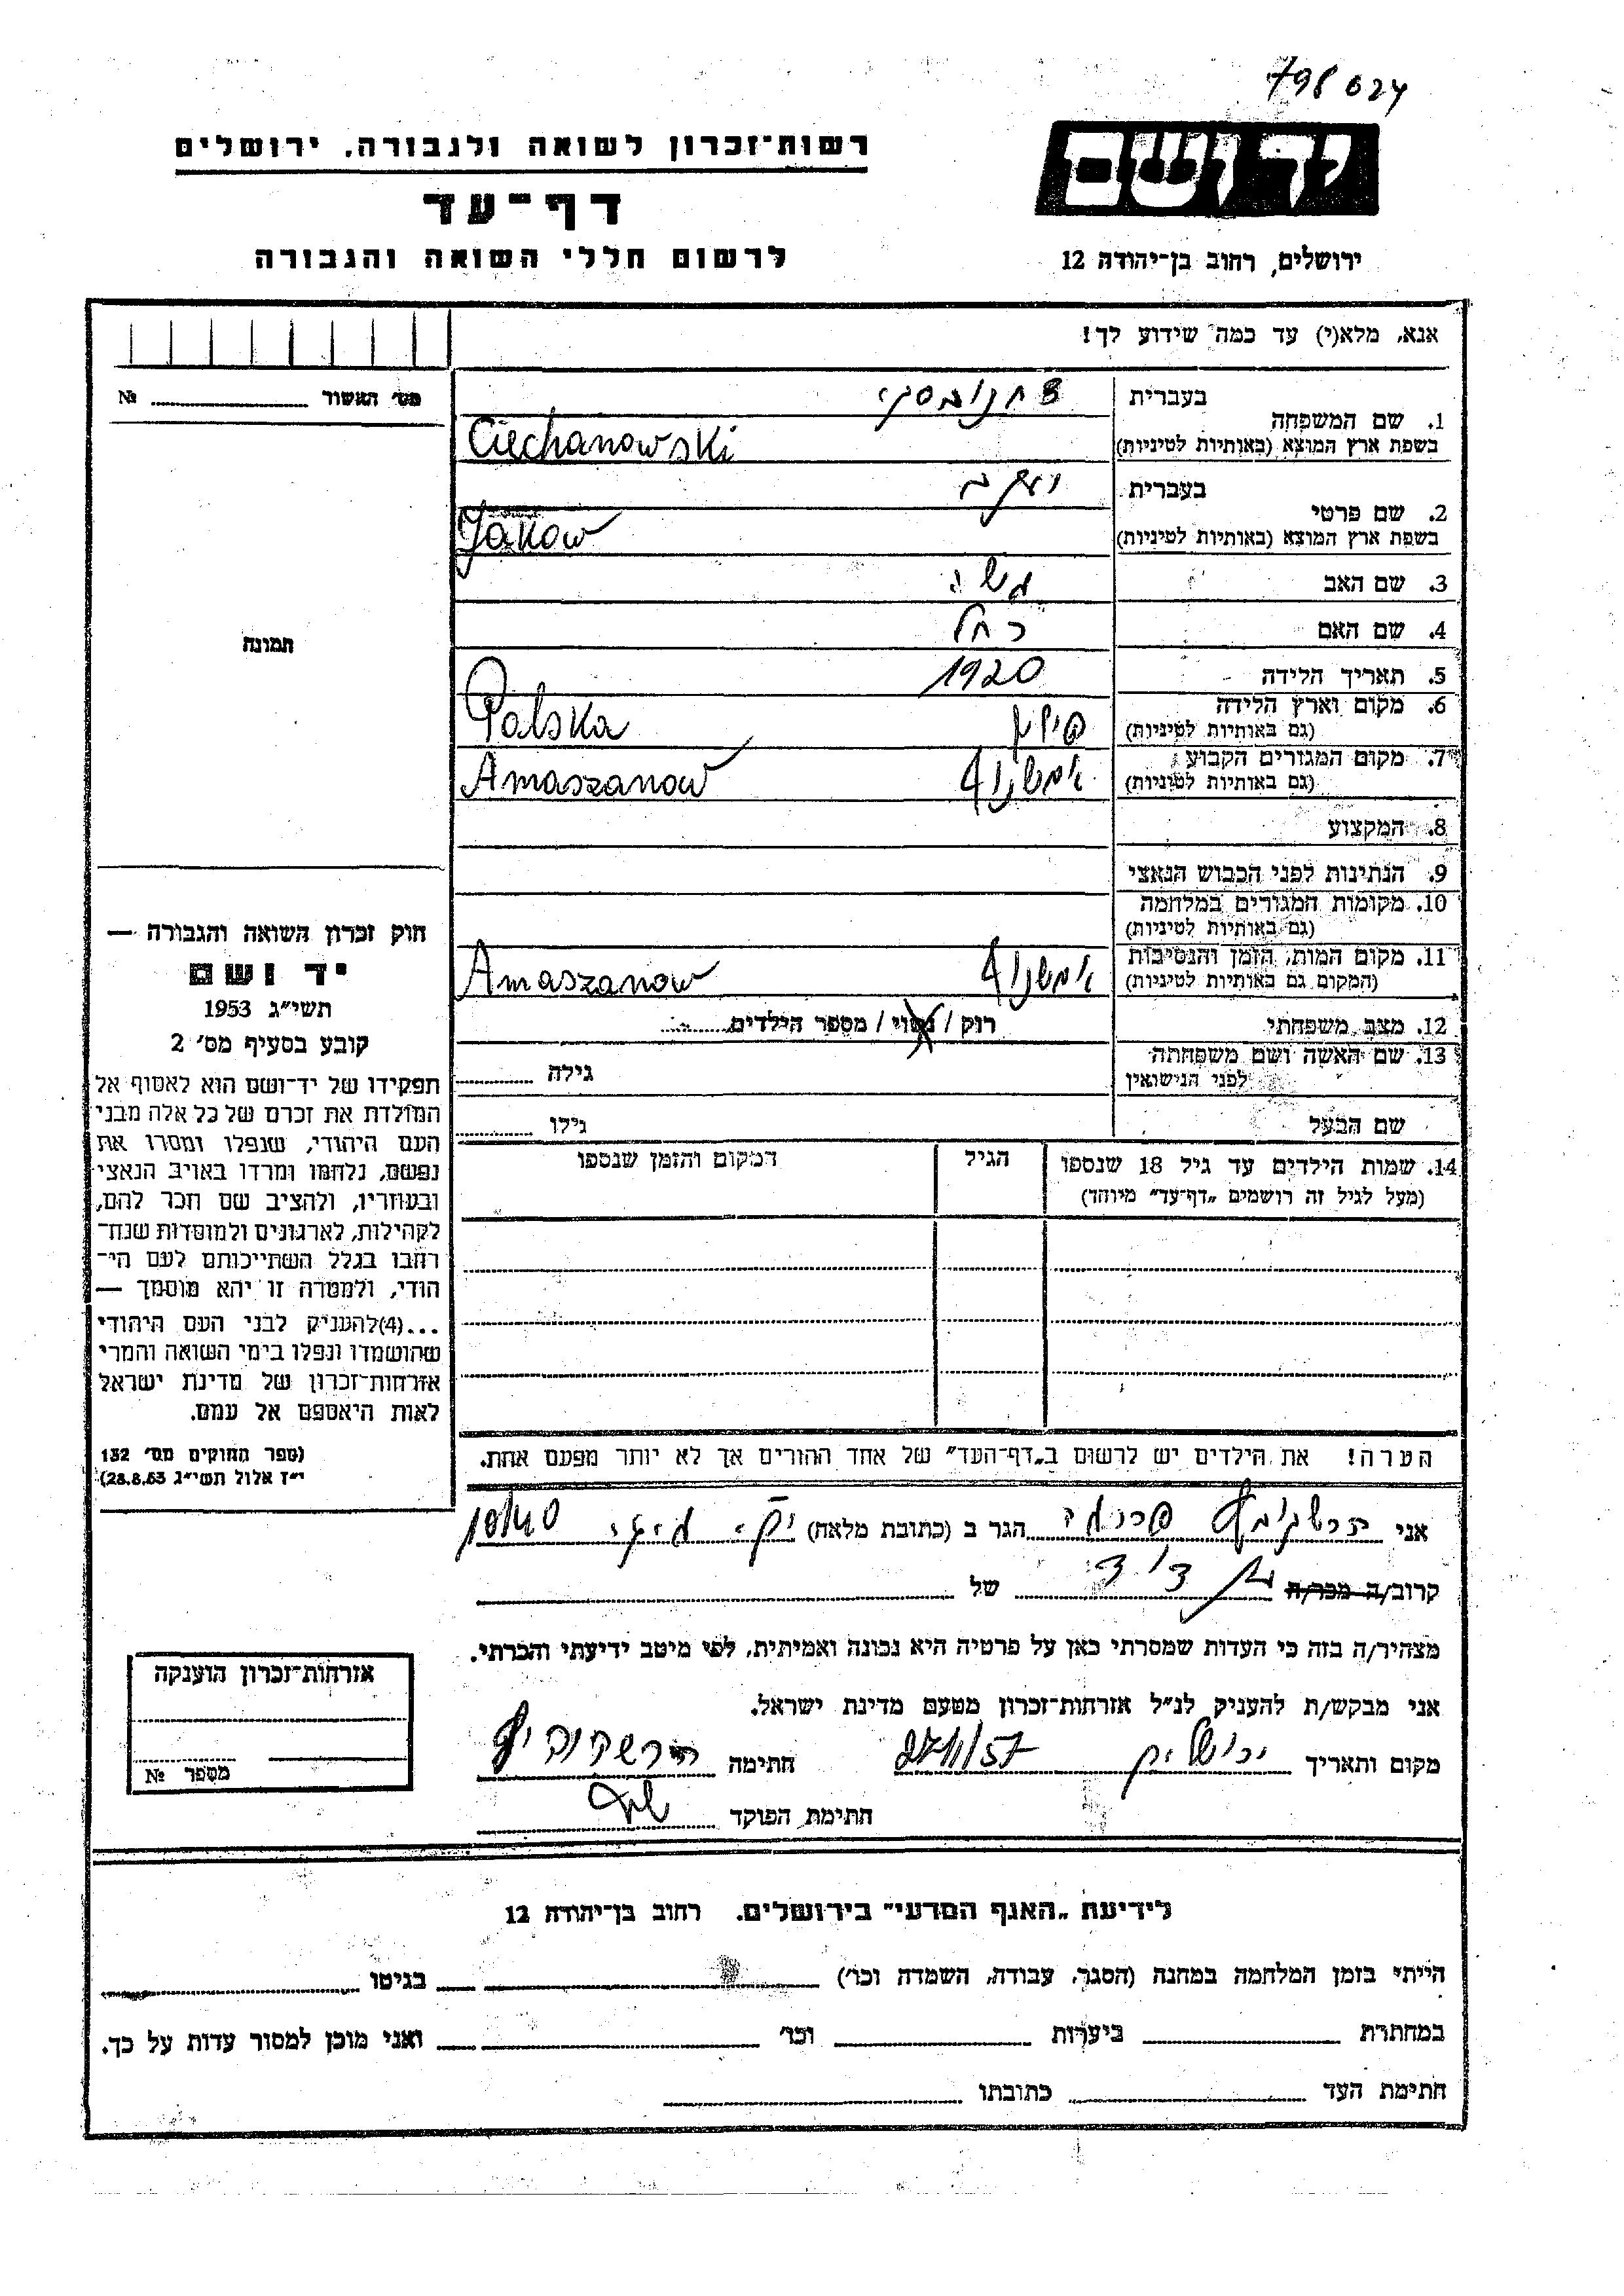 798024
יד ושם
רשות־זכרון לשואה ולגבורה, ירושלים
דף־עד
לרשום חללי השואה והגבורה
ירושלים, רחוב בן־יהודה 12
אנא, מלא(י) עד כמה שידוע לך!
מס׳ האשור ........ №
תמונה
1. שם המשפחה
בעברית
צחנובסקי
בשפת ארץ המוצא (באותיות לטיניות)
Ciechanowski
2. שם פרטי
בעברית
יעקב
בשפת ארץ המוצא (באותיות לטיניות)
Jakow
3. שם האב משה
4. שם האם רחל
5. תאריך הלידה 1920
6. מקום וארץ הלידה
(גם באותיות לטיניות)
פולין Polska
7. מקום המגורים הקבוע
(גם באותיות לטיניות)
אמשנוב Amaszanow
8. המקצוע
9. הנתינות לפני הכבוש הנאצי
10. מקומות המגורים במלחמה
(גם באותיות לטיניות)
11. מקום המות, הזמן והנסיבות
(המקום גם באותיות לטיניות)
אמשנוב Amaszanow
12. מצב משפחתי רוק / נשוי / מספר הילדים........
13. שם האשה ושם משפחתה
לפני הנישואין
גילה ........
שם הבעל גילו ........
14. שמות הילדים עד גיל 18 שנספו
(מעל לגיל זה רושמים „דף־עד” מיוחד)
הגיל
המקום והזמן שנספו
הערה! את הילדים יש לרשום ב„דף־העד” של אחד ההורים אך לא יותר מפעם אחת.
חוק זכרון השואה והגבורה —
יד ושם
תשי״ג 1953
קובע בסעיף מס׳ 2
תפקידו של יד־ושם הוא לאסוף אל
המולדת את זכרם של כל אלה מבני
העם היהודי, שנפלו ומסרו את
נפשם, נלחמו ומרדו באויב הנאצי
ובעוזריו, ולהציב שם וזכר להם,
לקהילות, לארגונים ולמוסדות שנח־
רבו בגלל השתייכותם לעם הי־
הודי, ולמטרה זו יהא מוסמך —
...(4)להעניק לבני העם היהודי
שהושמדו ונפלו בימי השואה והמרי
אזרחות־זכרון של מדינת ישראל
לאות היאספם אל עמם.
(ספר החוקים מס׳ 132
י״ז אלול תשי״ג 28.8.53)
אני הגר ב (כתובת מלאה) 10/40
קרוב/ה מכר/ה בן דוד של
מצהיר/ה בזה כי העדות שמסרתי כאן על פרטיה היא נכונה ואמיתית, לפי מיטב ידיעתי והכרתי.
אני מבקש/ת להעניק לנ״ל אזרחות־זכרון מטעם מדינת ישראל.
מקום ותאריך ירושלים חתימה
חתימת הפוקד
אזרחות־זכרון הוענקה
מספר №
לידיעת „האגף המדעי” בירושלים. רחוב בן־יהודה 12
הייתי בזמן המלחמה במחנה (הסגר, עבודה, השמדה וכו׳) בגיטו
במחתרת ביערות וכו׳ ואני מוכן למסור עדות על כך.
חתימת העד כתובתו